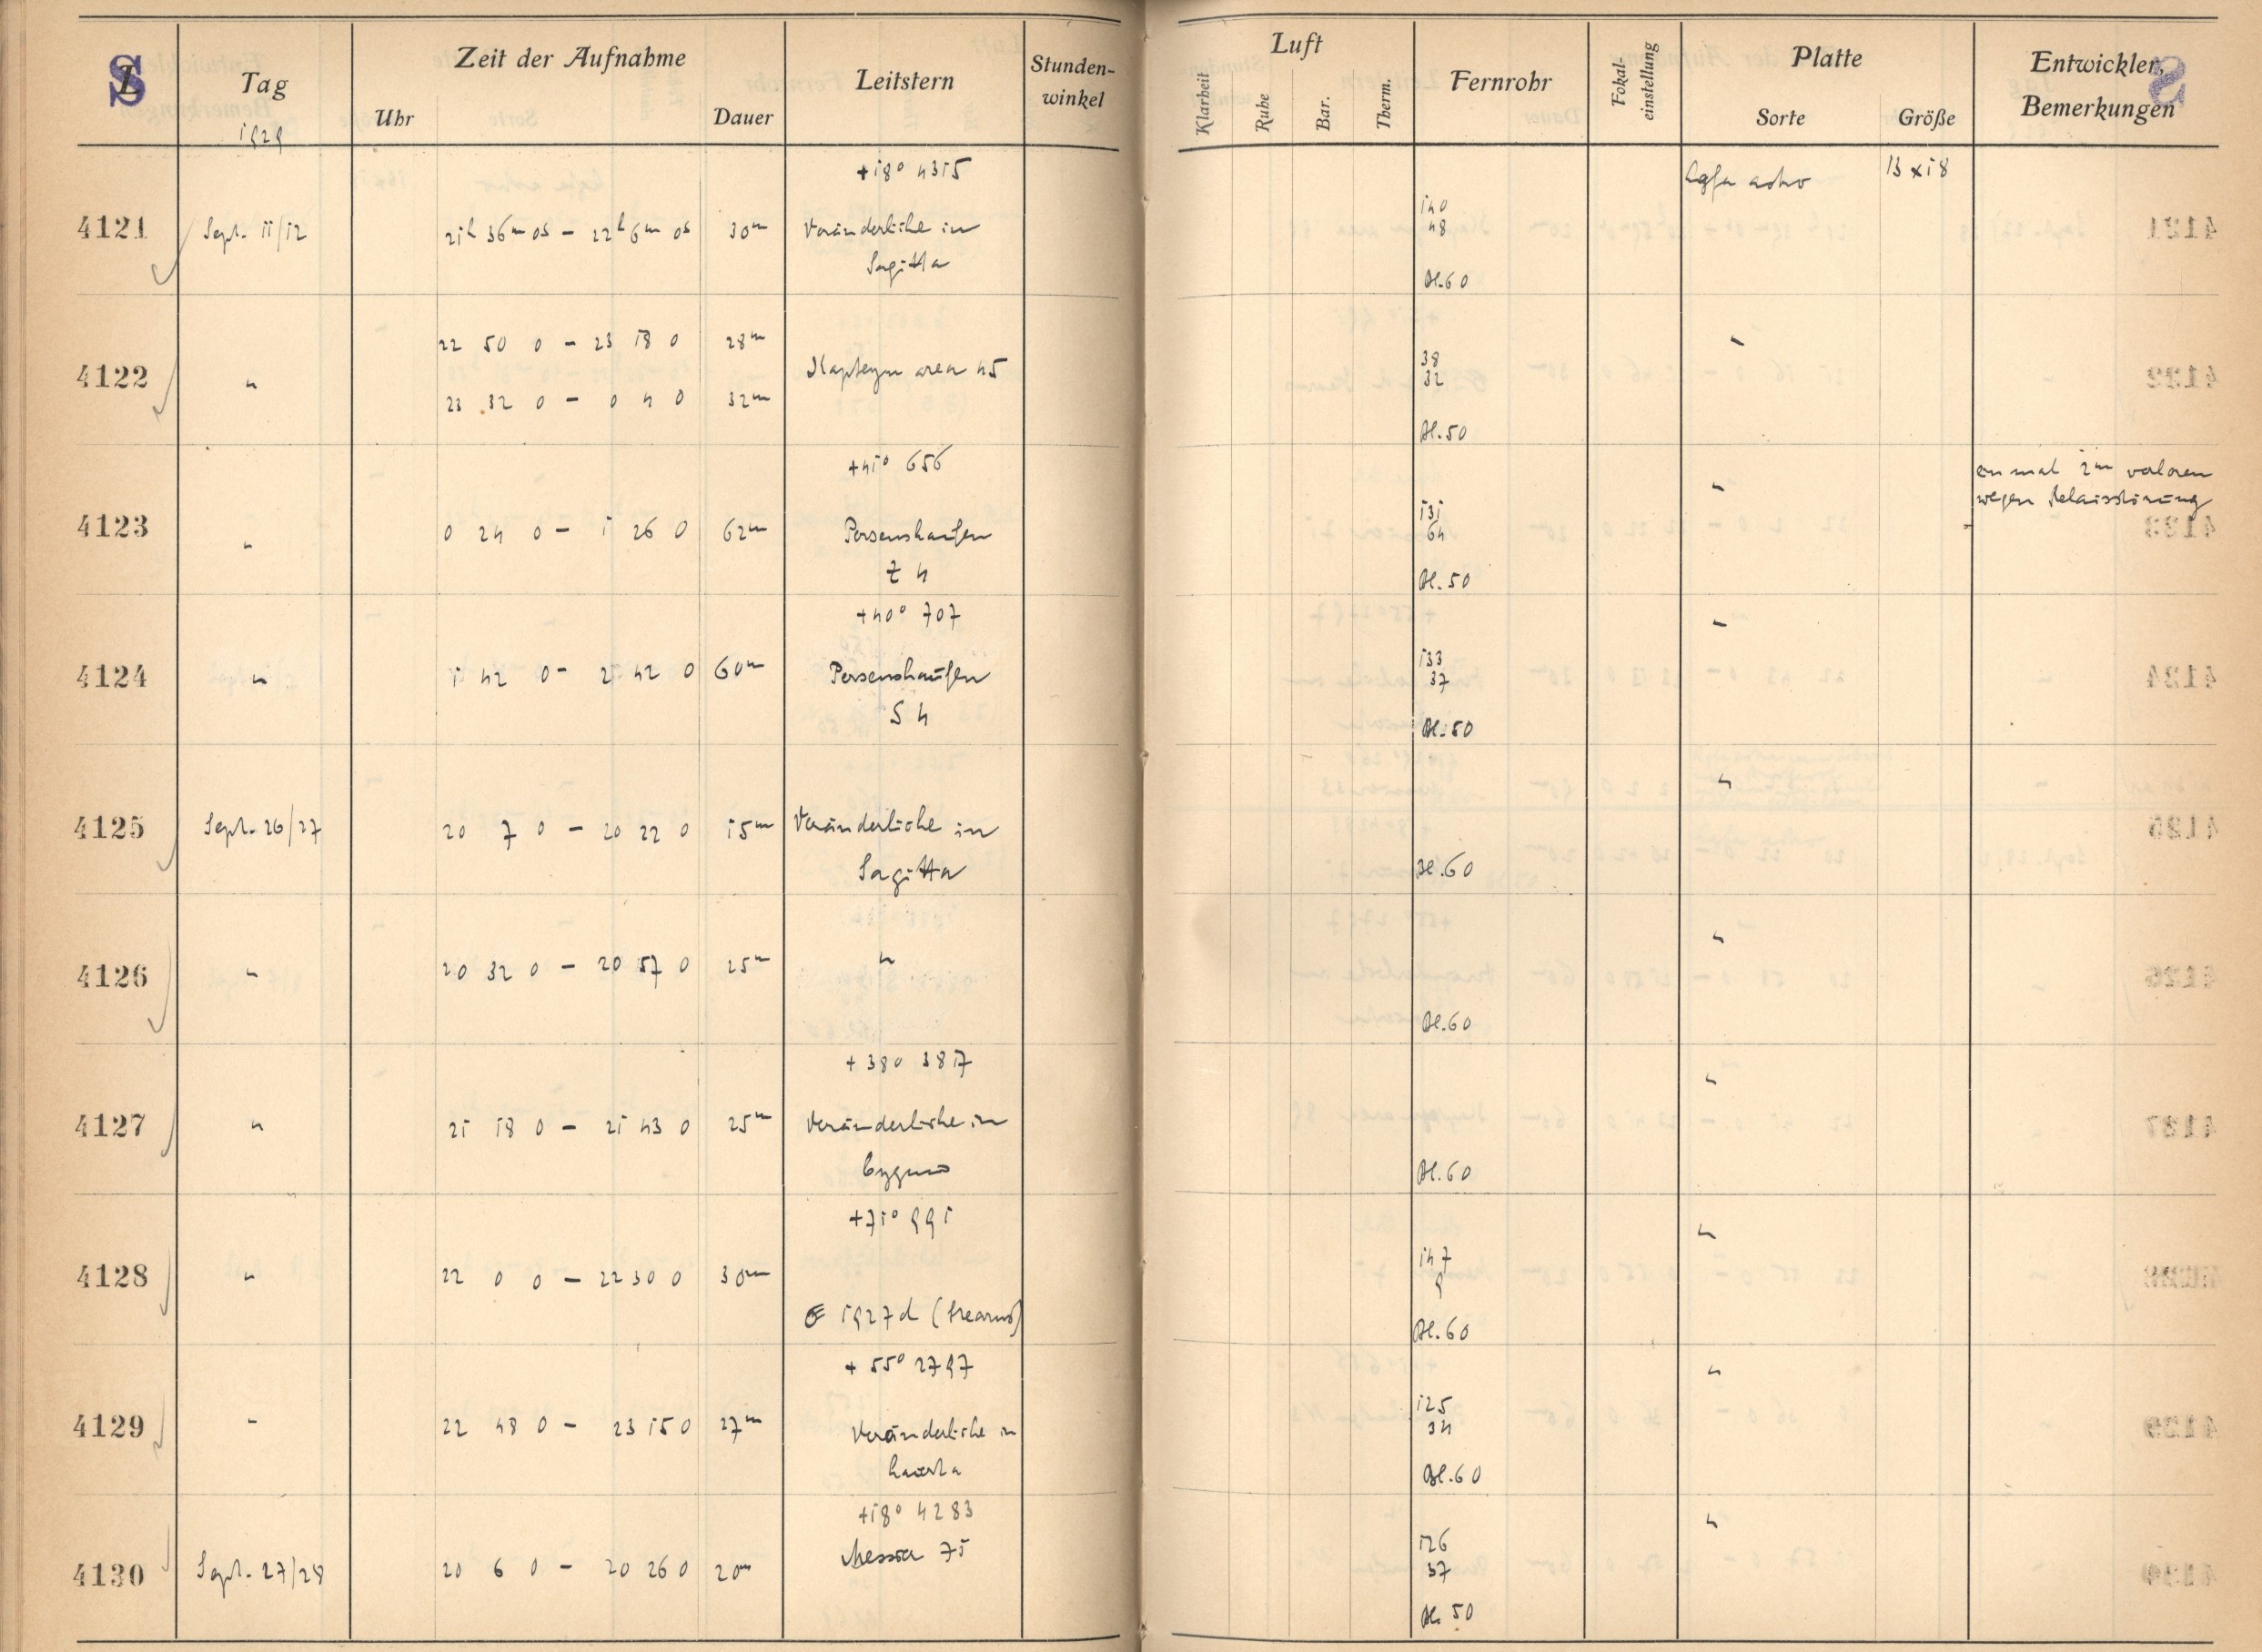 S
L
Tag
1929
Zeit der Aufnahme
Uhr
Dauer
Leitstern
Stunden-
winkel
Luft
Klarheit
Ruhe
Bar.
Therm.
Fernrohr
Fokal-
einstellung
Platte
Sorte
Größe
Entwickler,
Bemerkungen
+18° 4315
Agfa astro 13 x 18
140
48
4121 Sept. 11/12 21h 36m 0s - 22h 6m 0s 30m Veränderliche in
Sagitta
Bl. 60
22 50 0 - 23 18 0 28m
4122 " Kapteyn area 45
38
32
23 32 0 - 0 4 0 32m
Bl. 50
+41° 656
einmal 2m verloren
wegen Relaisstörung
131
64
4123 " 0 24 0 - 1 26 0 62m Perseushaufen
Z 4
Bl. 50
+40° 707
133
37
4124 " 1 42 0 - 2 42 0 60m Perseushaufen
S 4
Bl. 50
4125 Sept. 26/27 20 7 0 - 20 22 0 15m Veränderliche in
Sagitta
Bl. 60
4126 " 20 32 0 - 20 57 0 25m "
Bl. 60
+38° 3817
4127 " 21 18 0 - 21 43 0 25m Veränderliche in
Cygnus
Bl. 60
+71° 991
147
9
4128 " 22 0 0 - 22 30 0 30m
1927d (Stearns)
Bl. 60
+55° 2797
125
34
4129 " 22 48 0 - 23 15 0 27m Veränderliche in
Lacerta
Bl. 60
+18° 4283
Messier 71
126
37
4130 Sept. 27/28 20 6 0 - 20 26 0 20m
Bl. 50